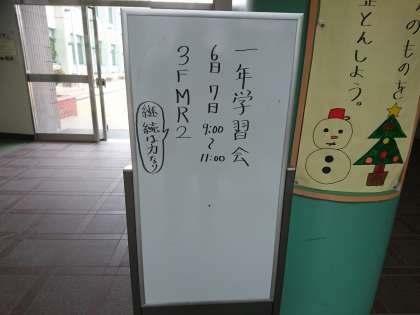 一年学習会
6日 7日 9:00～11:00
3FMR2
継続は力なり
のものを
整とんしよう。